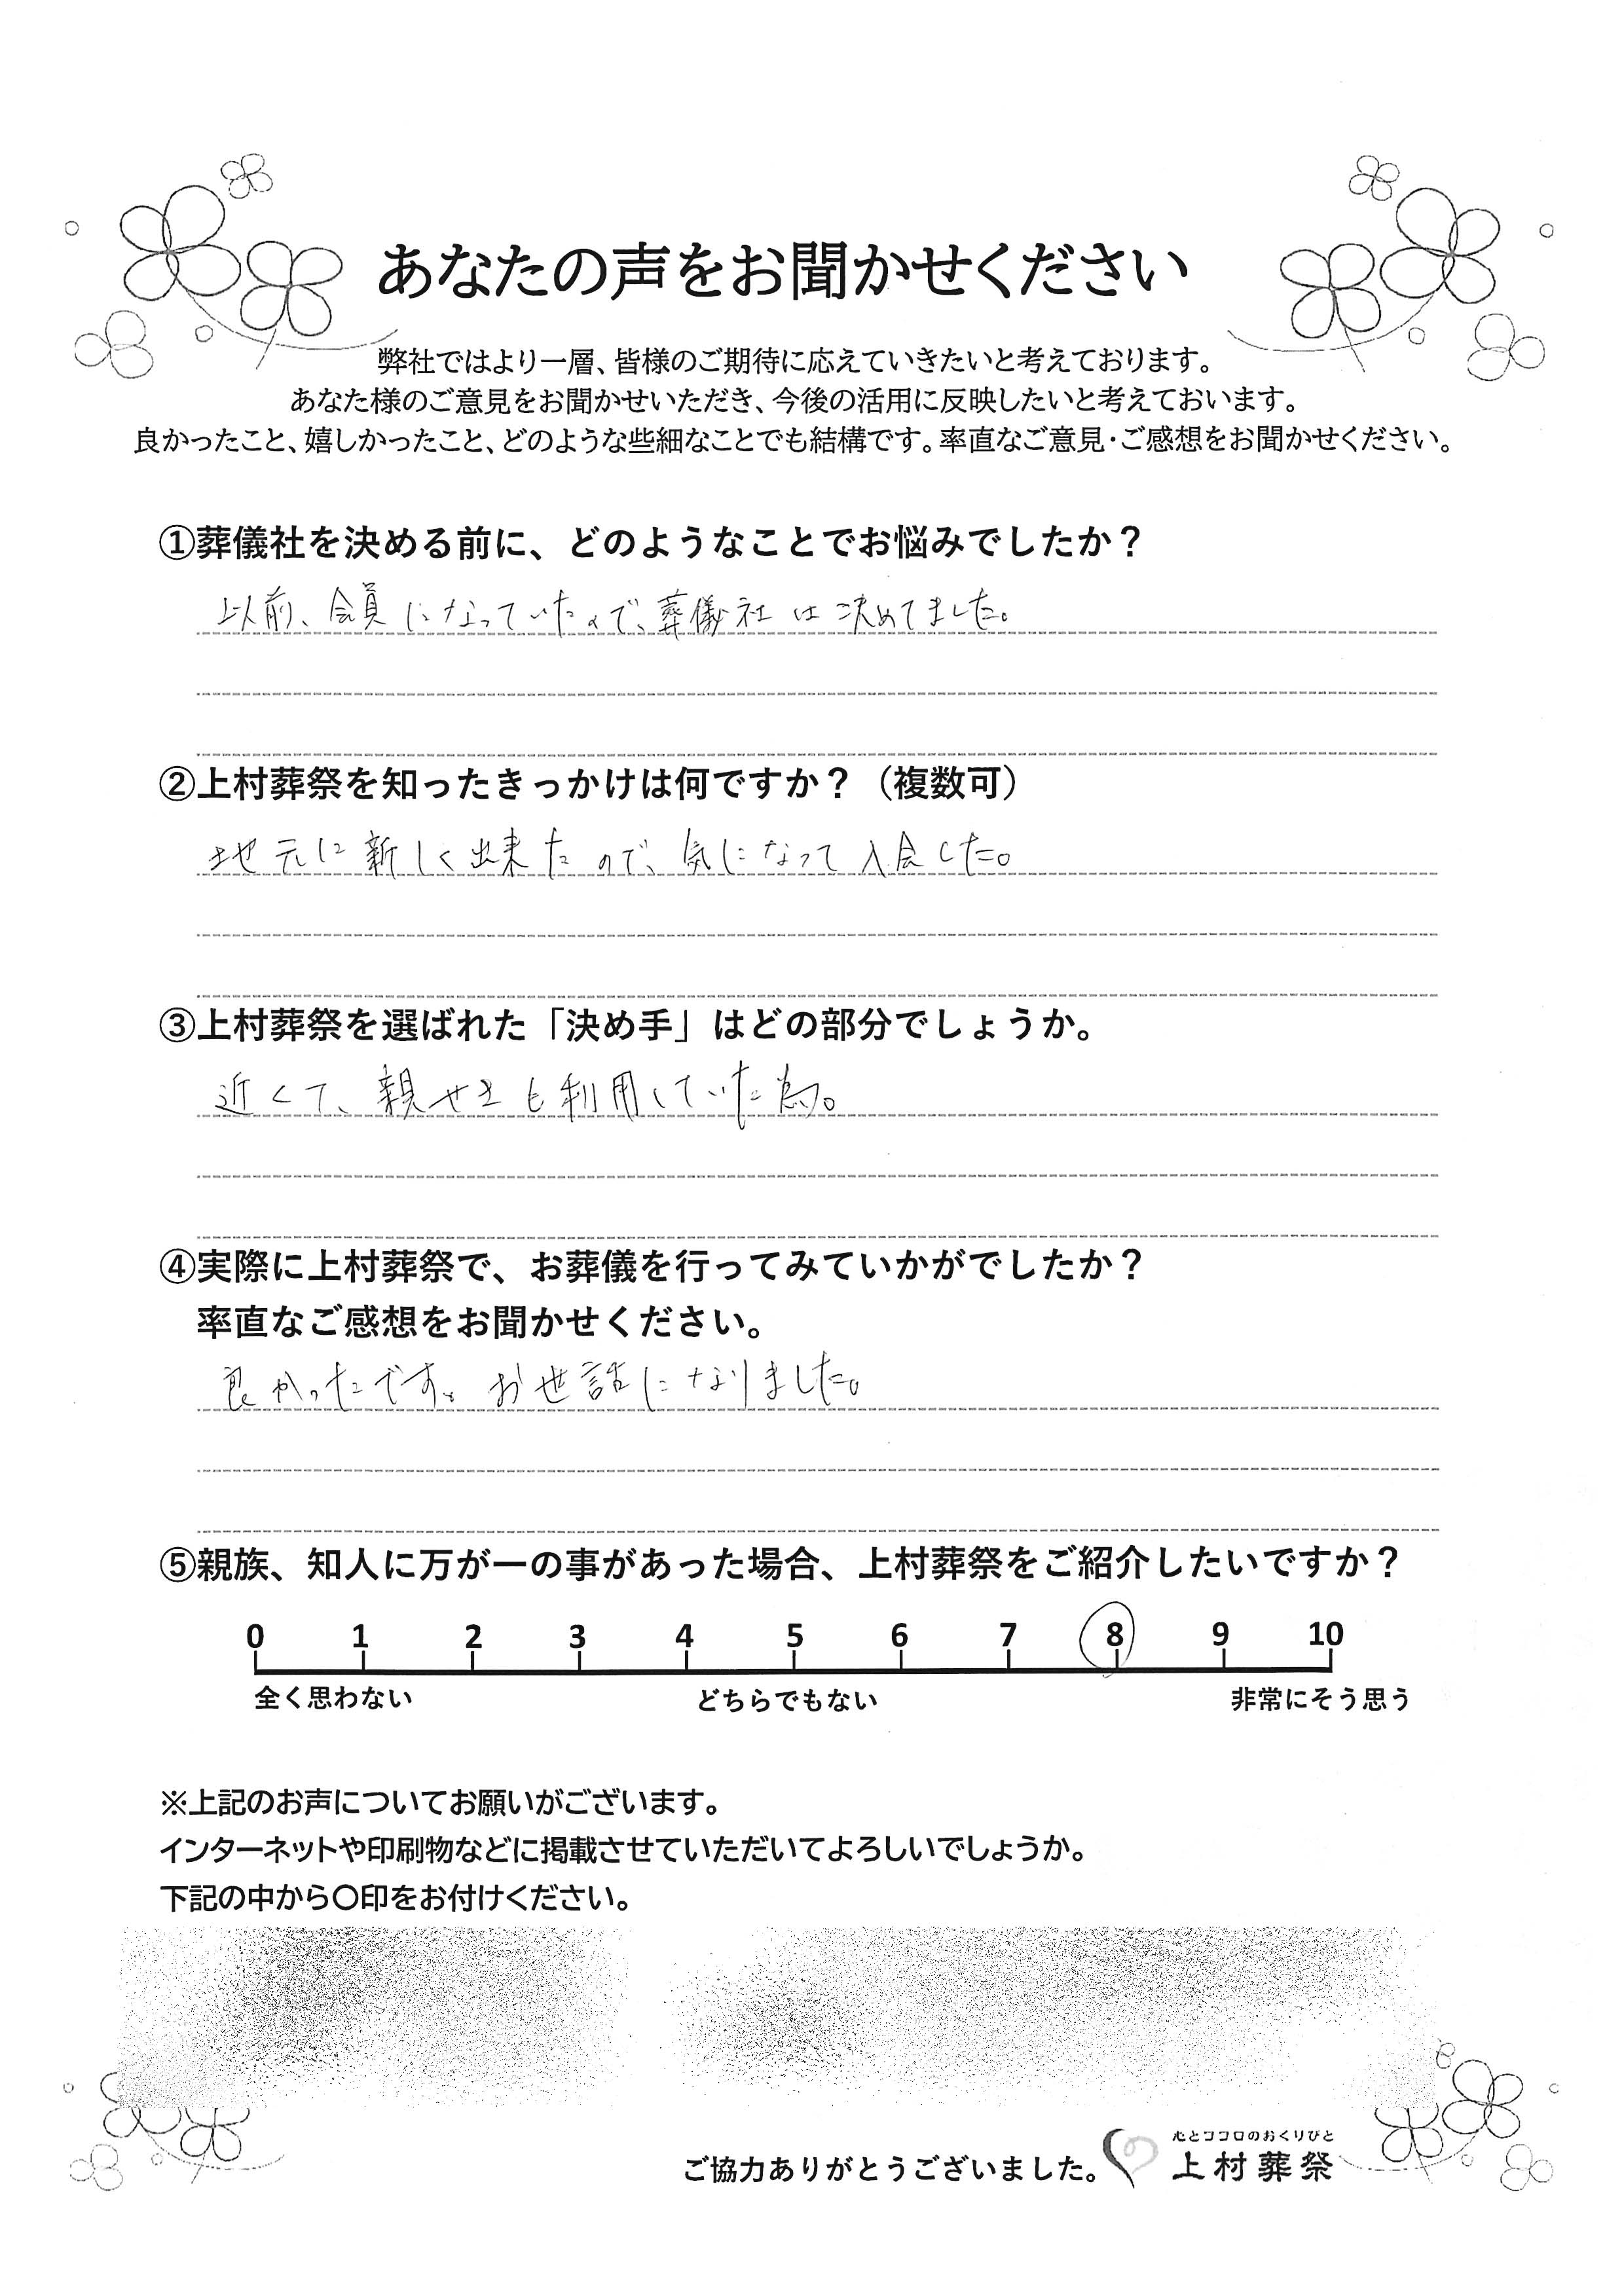 あなたの声をお聞かせください
弊社ではより一層、皆様のご期待に応えていきたいと考えております。
あなた様のご意見をお聞かせいただき、今後の活用に反映したいと考えておいます。
良かったこと、嬉しかったこと、どのような些細なことでも結構です。率直なご意見・ご感想をお聞かせください。
①葬儀社を決める前に、どのようなことでお悩みでしたか？
以前、会員になっていたので、葬儀社は決めてました。
②上村葬祭を知ったきっかけは何ですか？（複数可）
地元に新しく出来たので、気になって入会した。
③上村葬祭を選ばれた「決め手」はどの部分でしょうか。
近くて、親せきも利用していた為。
④実際に上村葬祭で、お葬儀を行ってみていかがでしたか？
率直なご感想をお聞かせください。
良かったです。お世話になりました。
⑤親族、知人に万が一の事があった場合、上村葬祭をご紹介したいですか？
0 1 2 3 4 5 6 7 8 9 10
全く思わない どちらでもない 非常にそう思う
※上記のお声についてお願いがございます。
インターネットや印刷物などに掲載させていただいてよろしいでしょうか。
下記の中から〇印をお付けください。
心とココロのおくりびと
ご協力ありがとうございました。 上村葬祭